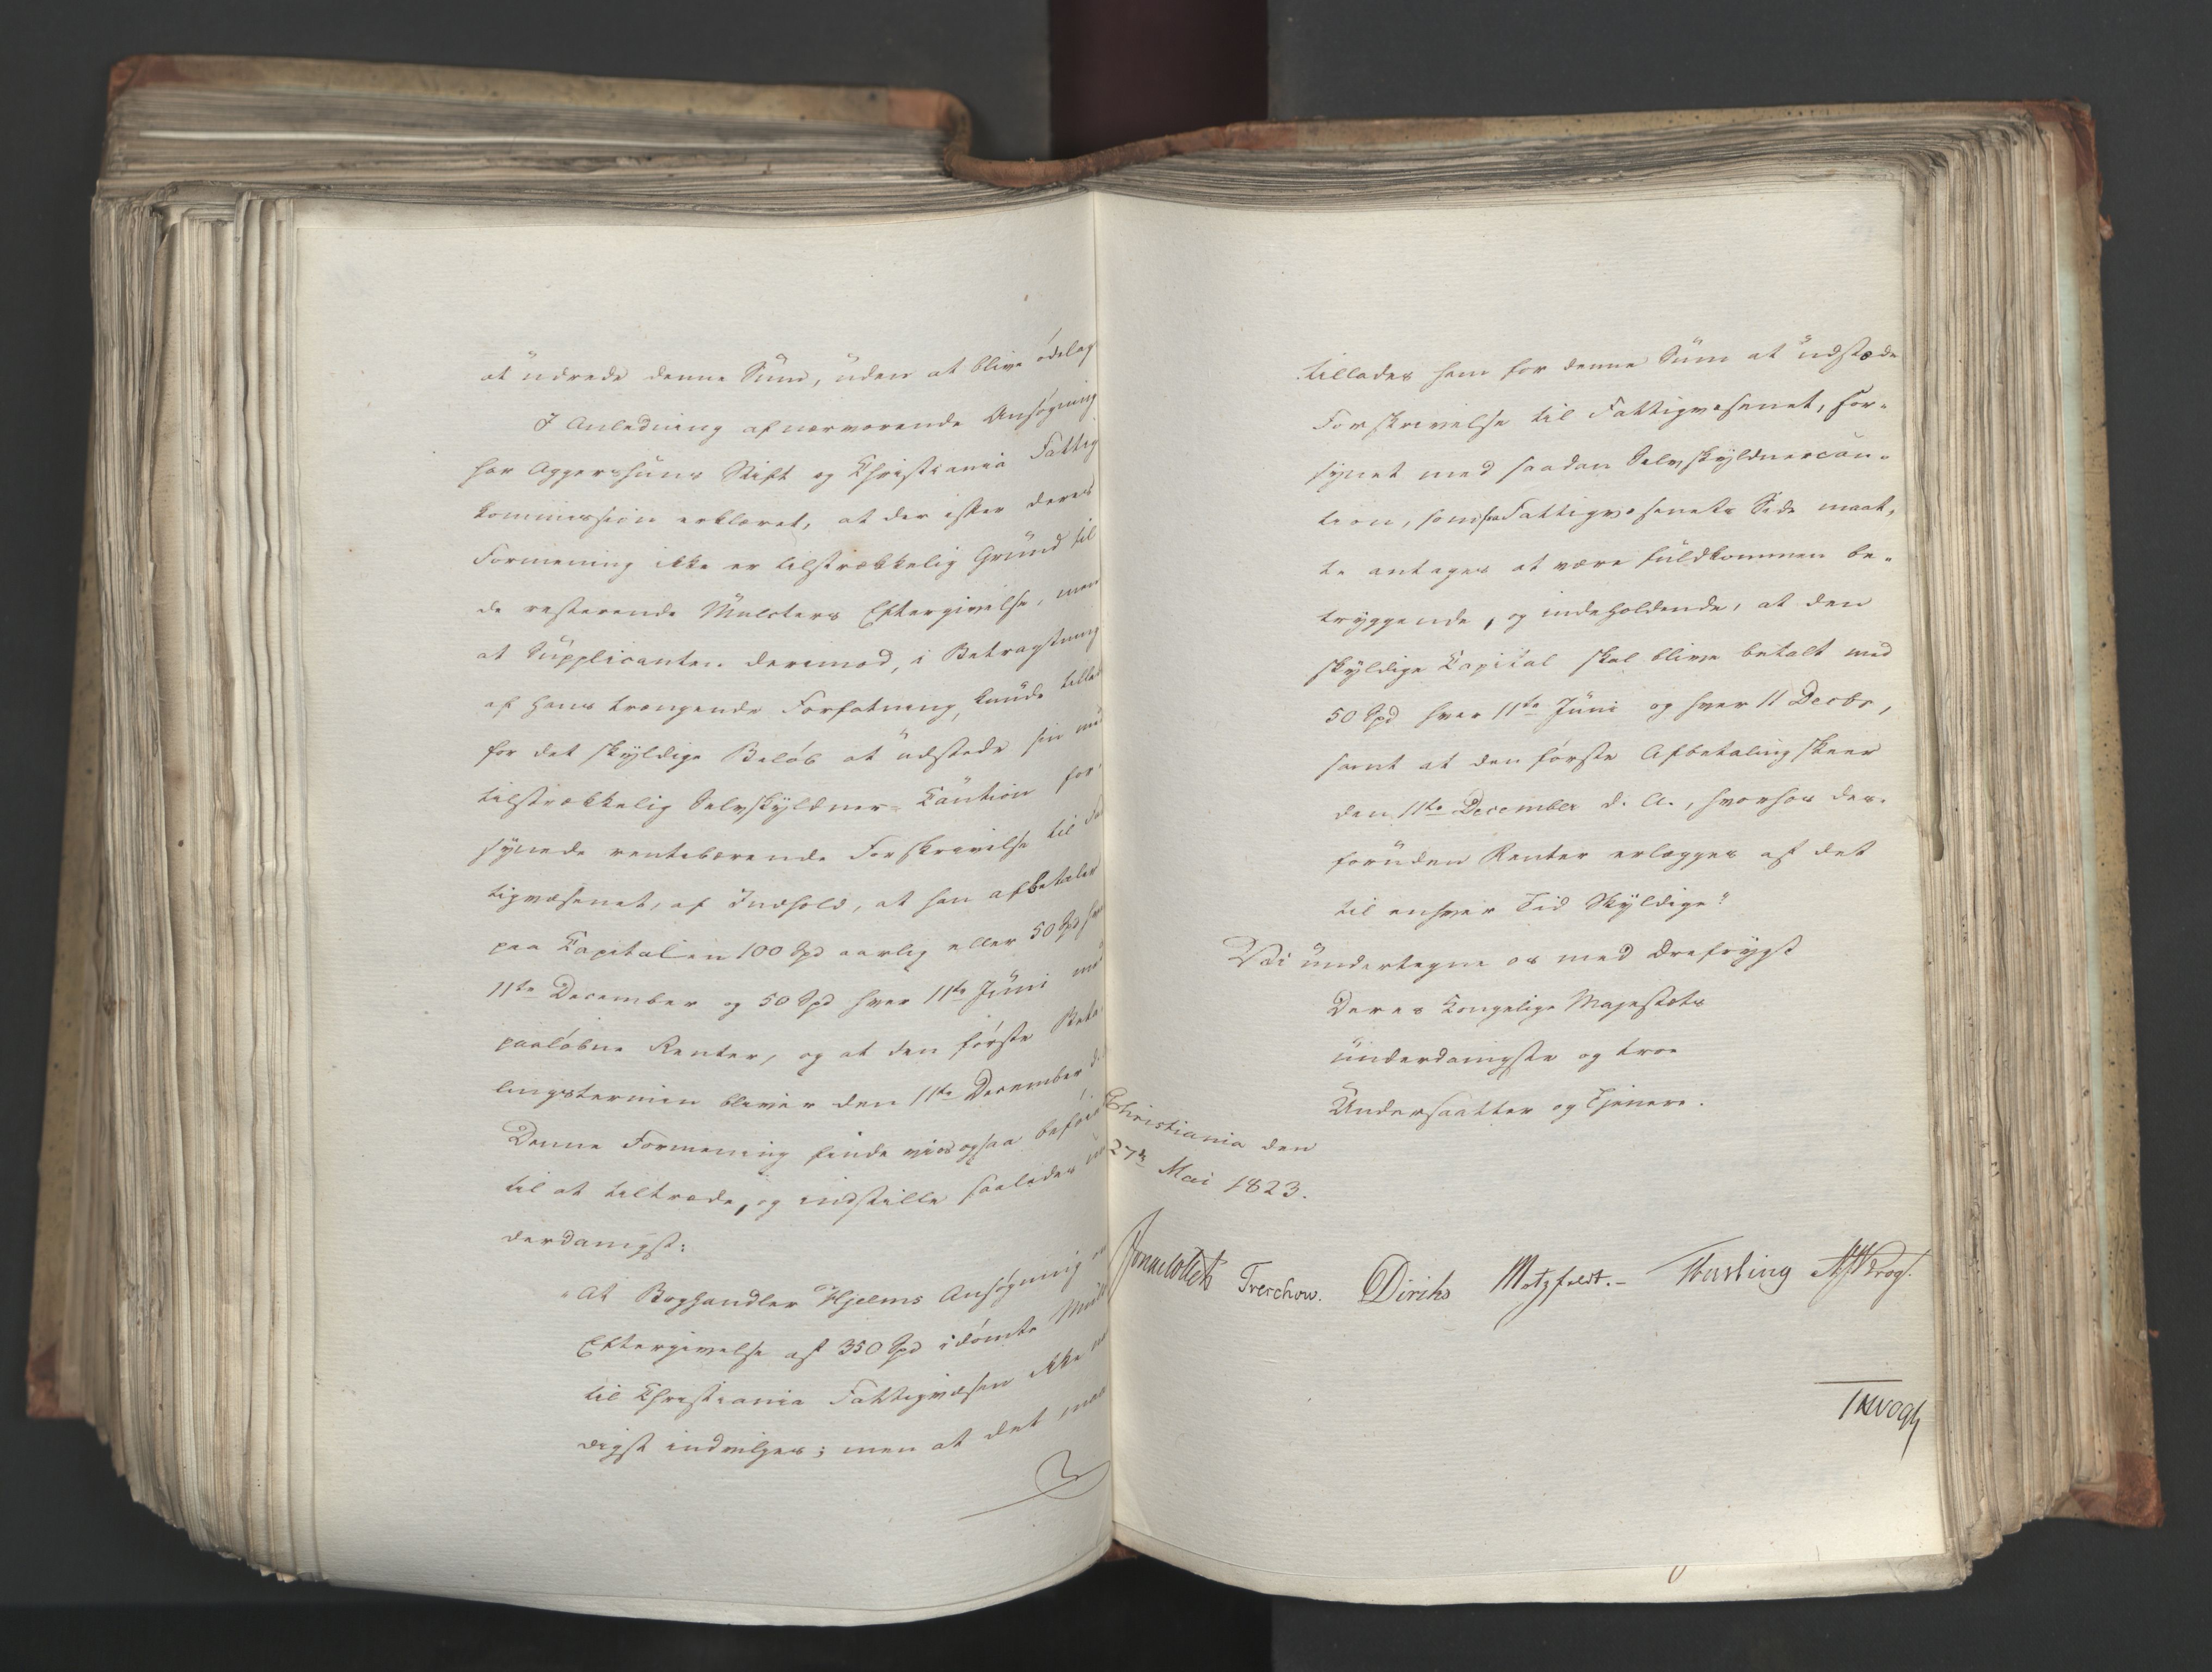 at udrede denne Sum, uden at blive ödelag
I Anledning af nærværende Ansögning
har Aggershuus Stift og Christiania Fattig
kommission erklæret, at der efter deres
Formening ikke er tilstrækkelig Grund til
de resterende Mulcters Eftergivelse, men
at Supplicanten derimod, i Betragtning
af hans trængende Forfatning, kunde tillad
for det skyldige Belöb at udstede sin med
tilstrækkelig Selvskyldner-Caution for-
synede rentebærende Forskrivelse til Fat
tigvæsenet, af Indhold, at han afbetaler
paa Capitalen 100 Spd aarlig eller 50 Spd hver
11te December og 50 Spd hver 11te Juni med
paalöbne Renter, og at den förste Beta-
lingstermin bliver den 11te December d.
Denne Formening finde vi os ogsaa beföiede
til at tiltræde, og indstille saaledes un
derdanigst:
"At Boghandler Hjelms Ansögning om
Eftergivelse af 350 Spd idömte Mulkt
til Christiania Fattigvæsen ikke naa
digst indvilges; men at det naa
tillades ham for denne Sum at udstæde
Forskrivelse til Fattigvæsenet, for-
synet med saadan Selvskyldnercau-
tion, som fra Fattigvæsenets Side maat-
te antages at være fuldkommen be-
tryggende, og indeholdende, at den
skyldige Capital skal blive betalt med
50 Spd hver 11te Juni og hver 11 Decbr,
samt at den förste Afbetaling skeer
den 11te December d. A., hvorhos des-
foruden Renter erlægges af det
til enhver Tid Skyldige"
Vi undertegne os med Ærefrygt
Deres Kongelige Majestæts
underdanigste og troe
Undersaatter og Tjenere.
Christiania den
27de Mai 1823.
Sommerhielm Treschow. Diriks Motzfeldt.- Fasting Krog.